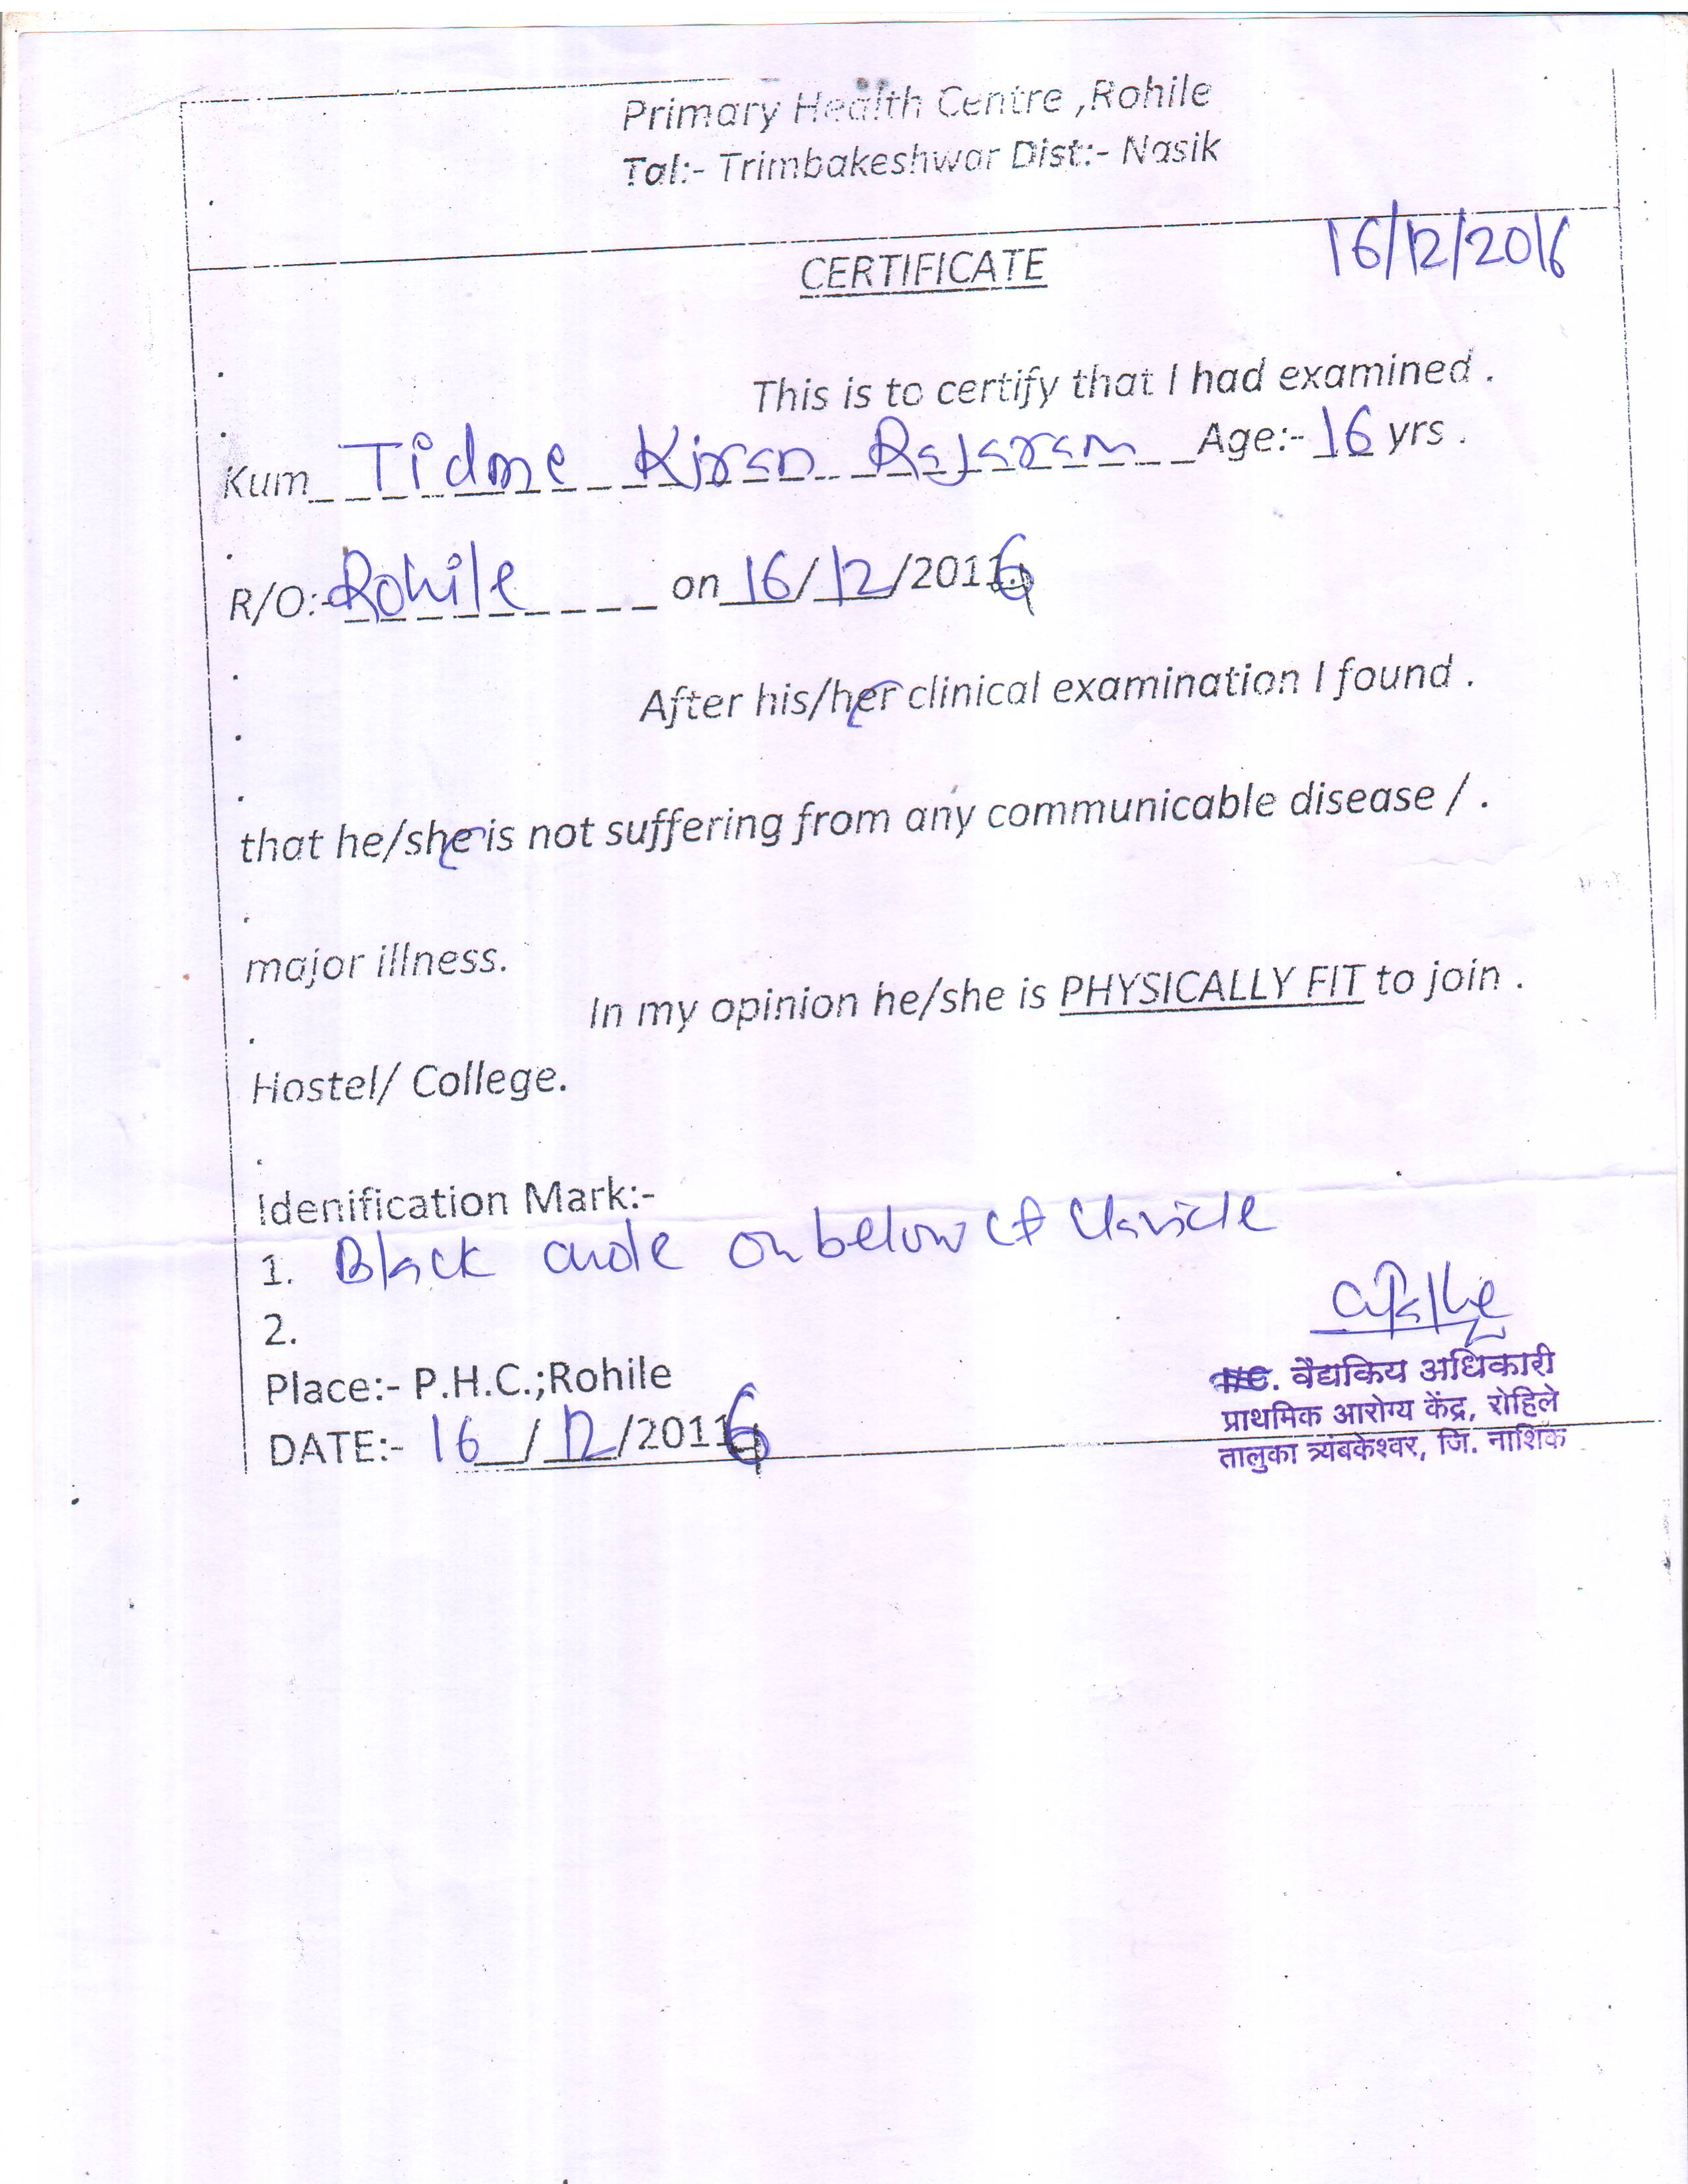 Primary Health Centre ,Rohile
Tal:- Trimbakeshwar Dist:- Nasik
CERTIFICATE 16/12/2016
This is to certify that I had examined .
Kum Tidme Kiran Rajaram Age:- 16 yrs .
R/O:- Rohile on 16/12/2016
After his/her clinical examination I found .
that he/she is not suffering from any communicable disease / .
major illness.
In my opinion he/she is PHYSICALLY FIT to join .
Hostel/ College.
Idenification Mark:-
1. Black mole on below Lt Clavicle
2.
Place:- P.H.C.;Rohile
DATE:- 16/12/2016
वैद्यकिय अधिकारी
प्राथमिक आरोग्य केंद्र, रोहिले
तालुका त्र्यंबकेश्वर, जि. नाशिक